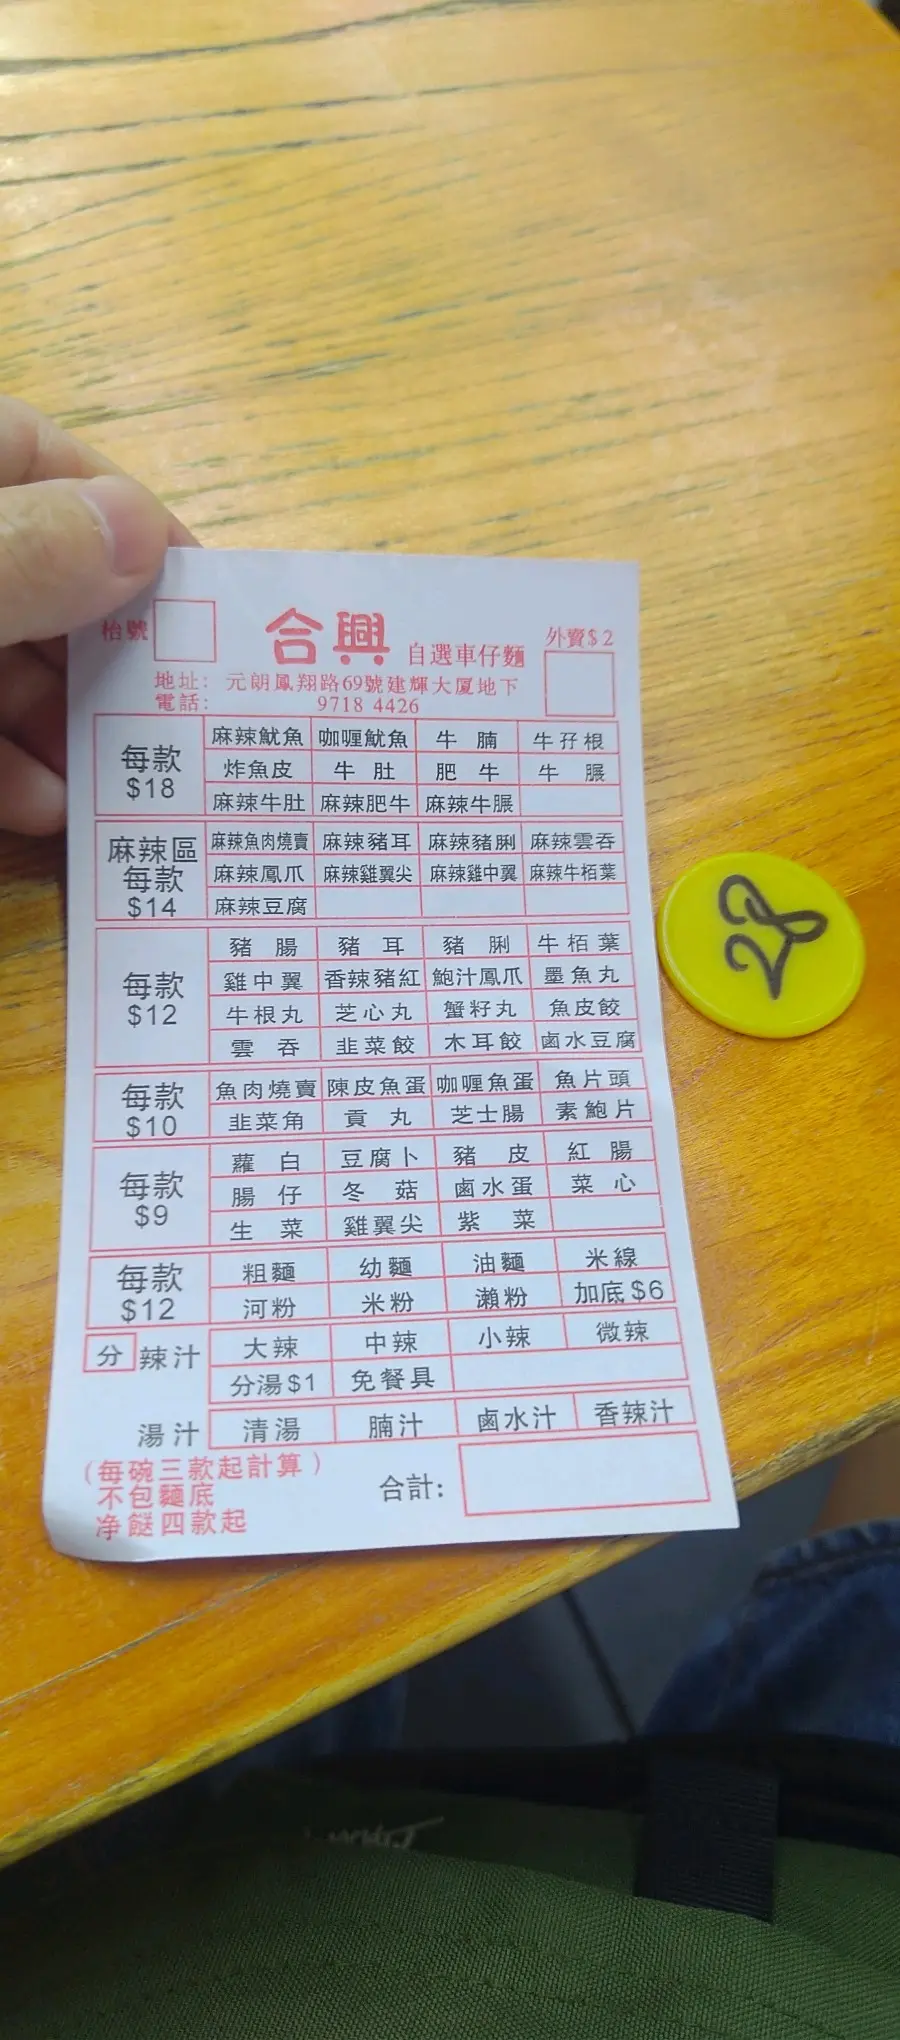 枱號
合興 自選車仔麵 外賣$2
地址: 元朗鳳翔路69號建輝大厦地下
電話: 9718 4426
每款 $18
麻辣魷魚 咖喱魷魚 牛腩 牛孖根
炸魚皮 牛肚 肥牛 牛𦟌
麻辣牛肚 麻辣肥牛 麻辣牛𦟌
麻辣區 每款 $14
麻辣魚肉燒賣 麻辣豬耳 麻辣豬脷 麻辣雲吞
麻辣鳳爪 麻辣雞翼尖 麻辣雞中翼 麻辣牛栢葉
麻辣豆腐
每款 $12
豬腸 豬耳 豬脷 牛栢葉
雞中翼 香辣豬紅 鮑汁鳳爪 墨魚丸
牛根丸 芝心丸 蟹籽丸 魚皮餃
雲吞 韭菜餃 木耳餃 鹵水豆腐
每款 $10
魚肉燒賣 陳皮魚蛋 咖喱魚蛋 魚片頭
韭菜角 貢丸 芝士腸 素鮑片
每款 $9
蘿白 豆腐卜 豬皮 紅腸
腸仔 冬菇 鹵水蛋 菜心
生菜 雞翼尖 紫菜
每款 $12
粗麵 幼麵 油麵 米線
河粉 米粉 瀨粉 加底$6
分 辣汁 大辣 中辣 小辣 微辣
分湯$1 免餐具
湯汁 清湯 腩汁 鹵水汁 香辣汁
(每碗三款起計算)
不包麵底
净餸四款起
合計: